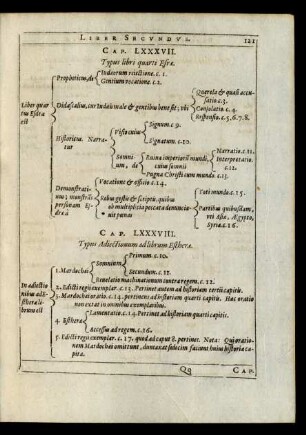 LIBER SECVNDVS. 121
CAP. LXXXVII.
Typus libri quarti Esræ.
Propheticus, de
Iudæorum reiectione. c. 1.
Gentium vocatione. c. 2.
Liber quar
tus Esdræ
est
Didascalius, cur Iudæis male & gentibus bene sit; vbi
Querela & quasi accu-
satio c. 3.
Consolatio c. 4.
Responsio. c. 5. 6. 7. 8.
Historicus. Nar-
ratur
Visio cuius
Signum. c. 9.
Signatum. c. 10.
Somni
um, de
Ruina imperiorum mundi,
cuius somnii
Narratio. c. 11.
Interpretatio.
c. 12.
Pugna Christi cum mundo c. 13.
Demonstrati-
uus; monstras
personam Es-
dræ à
Vocatione & officio. c. 14.
Rebus gestis & scriptis, quibus
ob multiplicia peccata denuncia-
uit pœnas
Toti mundo. c. 15.
Partibus quibusdam,
vti Asiæ, Aegypto,
Syriæ. c. 16.
CAP. LXXXVIII.
Typus Adiectionum ad librum Estheræ.
In adiectio
nibus ad E-
stheræ li-
brum est
1. Mardochæi
Somnium
Primum. c. 10.
Secundum. c. 11.
Reuelatio machinationum contra regem. c. 12.
2. Edicti regis exemplar. c. 13. Pertinet autem ad historiam tertii capitis.
3. Mardochæi oratio. c. 14. pertinens ad historiam quarti capitis. Hæc oratio
non extat in omnibus exemplaribus.
4. Estheræ
Lamentatio c. 14. Pertinet ad historiam quarti capitis.
accessus ad regem. c. 16.
5. Edicti regis exemplar. c. 17. quod ad caput 8. pertinet. Nota: Qui oratio-
nem Mardochæi omittunt, duntaxat sedecim faciunt huius historiæ ca-
pita.
Qq CAP.